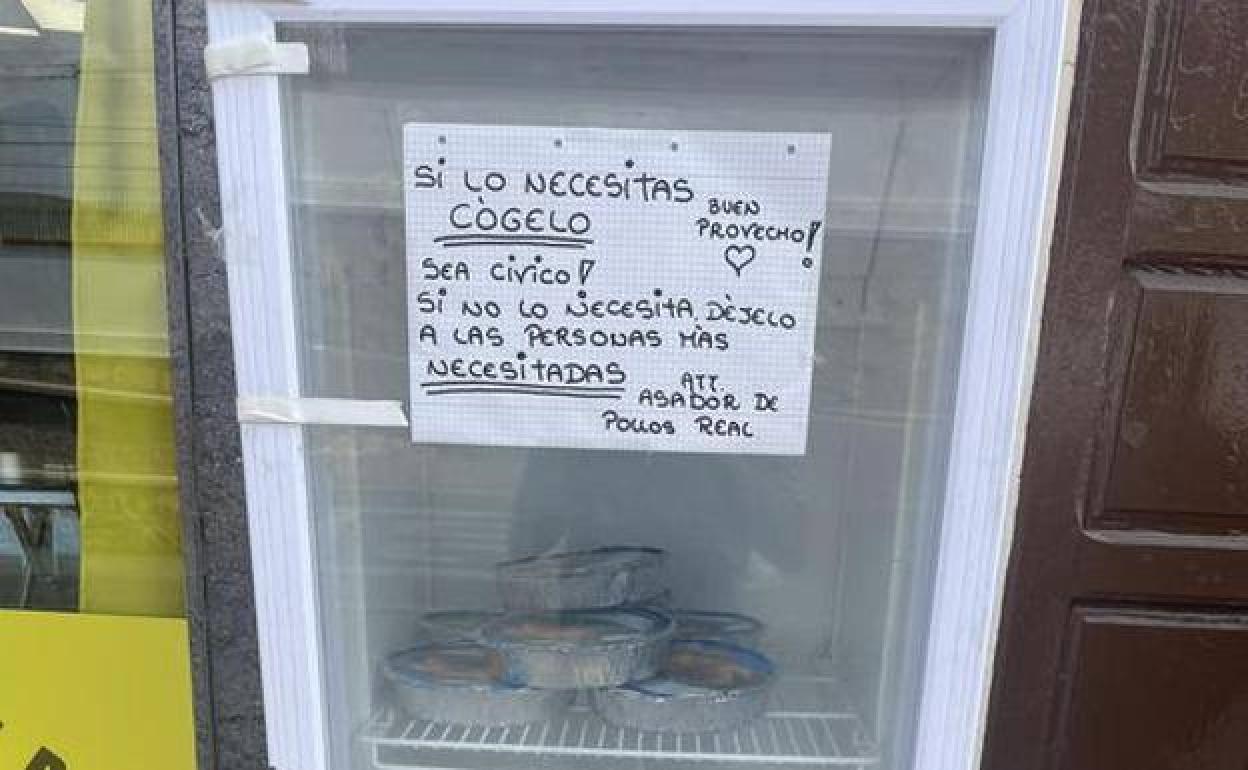 Si LO NECESiTAS
CÒGELO
BUEN
PROVECHO!
♡
SEA CiViCO!
Si NO LO NECESiTA DÈJELO
A LAS PERSONAS MÀS
NECESiTADAS
ATT.
ASADOR DE
POLLOS REAL